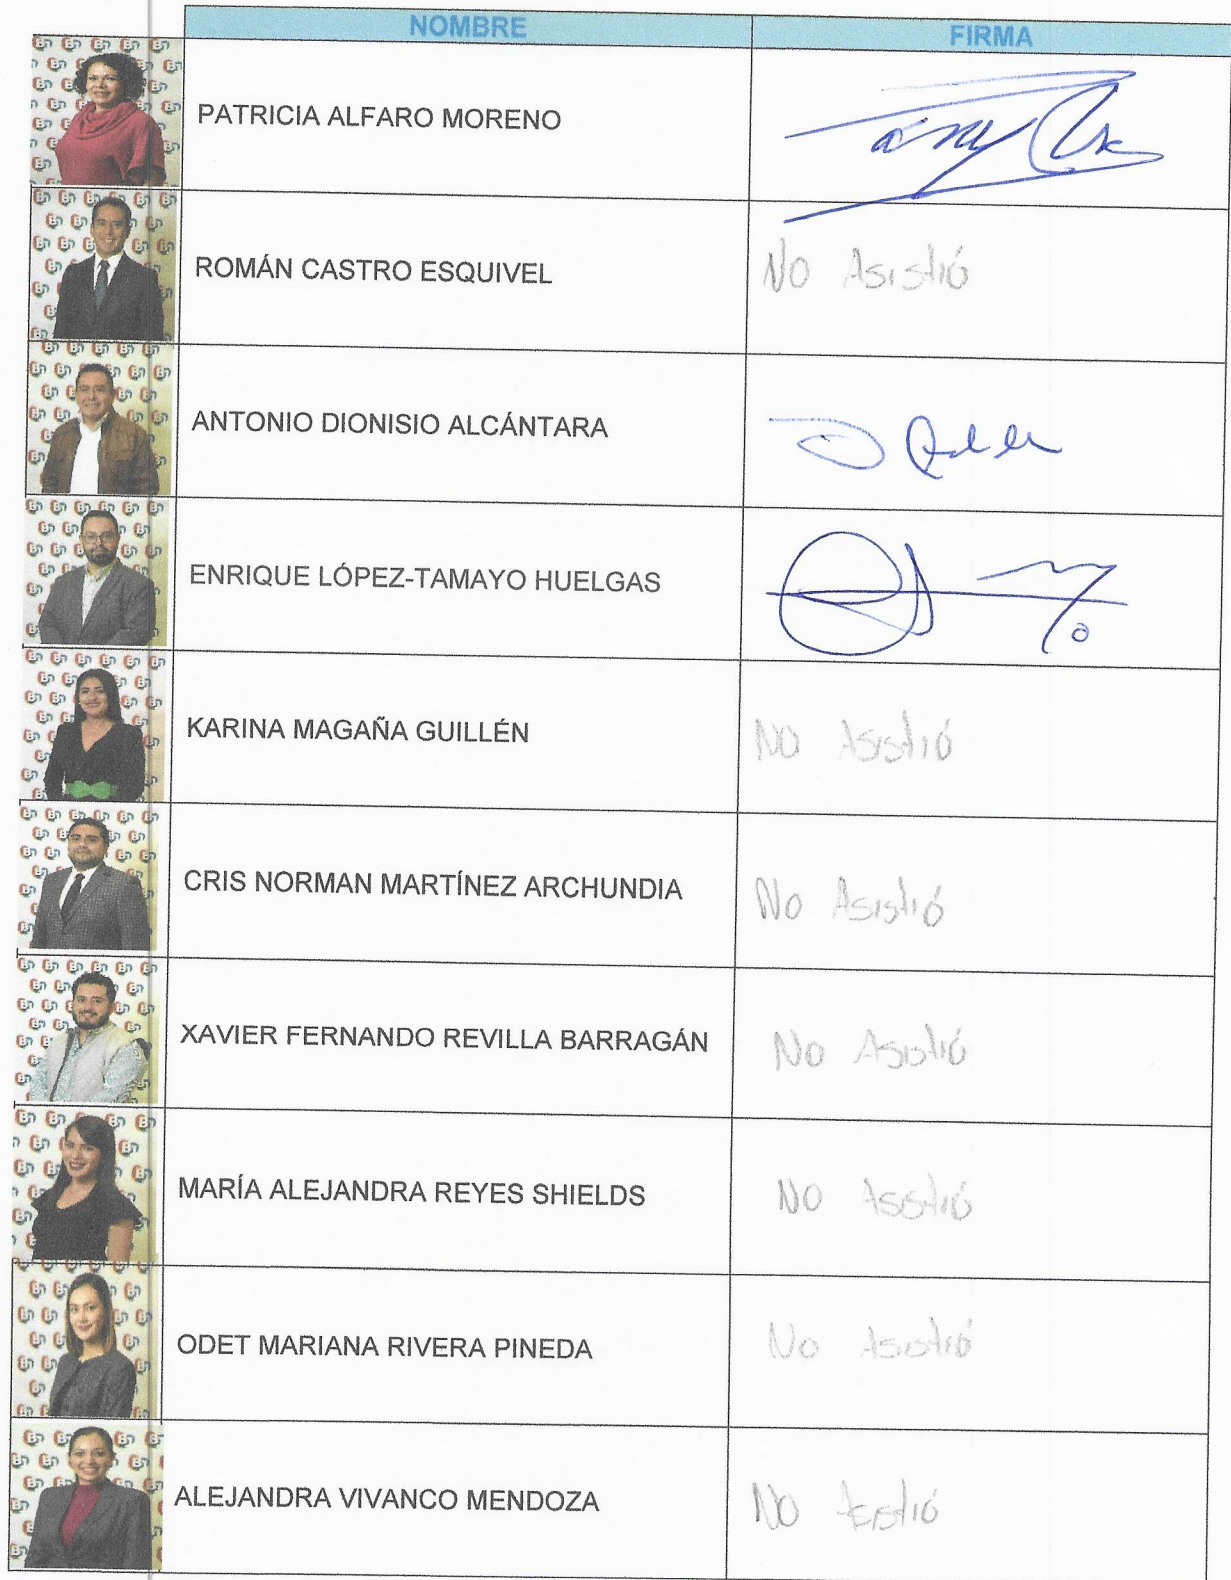 NOMBRE FIRMA
PATRICIA ALFARO MORENO
ROMÁN CASTRO ESQUIVEL No Asistió
ANTONIO DIONISIO ALCÁNTARA
ENRIQUE LÓPEZ-TAMAYO HUELGAS
KARINA MAGAÑA GUILLÉN No Asistió
CRIS NORMAN MARTÍNEZ ARCHUNDIA No Asistió
XAVIER FERNANDO REVILLA BARRAGÁN No Asistió
MARÍA ALEJANDRA REYES SHIELDS No Asistió
ODET MARIANA RIVERA PINEDA No Asistió
ALEJANDRA VIVANCO MENDOZA No Asistió